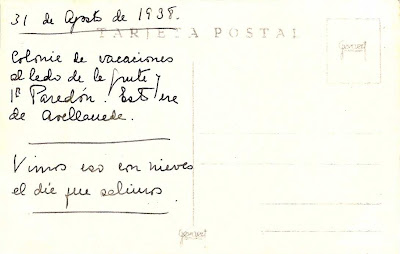 31 de Agosto de 1938.
TARJETA POSTAL
Gevaert
Colonie de vacaciones
al lado de la gruta y
1º Paredón. Est
de Avellaneda.
Vimos eso con nieves
el día que salimos.
Gevaert